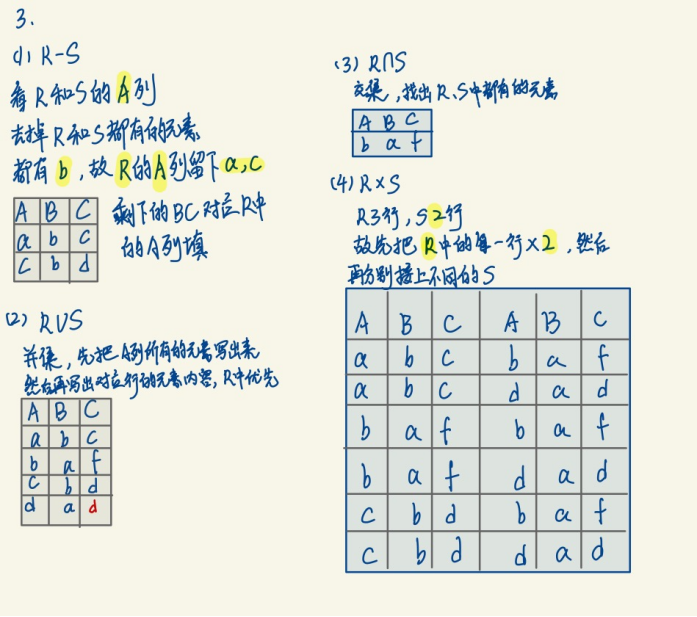 3.
(1) R-S
看R和S的A列
去掉R和S都有的元素
都有b，故R的A列留下a,c
A B C
a b c
c b d
剩下的BC对应R中
的A列填
(2) R∪S
并集，先把A列所有的元素写出来
然后再写出对应行的元素内容，R中优先
A B C
a b c
b a f
c b d
d a d
(3) R∩S
交集，找出R、S中都有的元素
A B C
b a f
(4) R×S
R3行，S2行
故先把R中的每一行×2，然后
再分别接上不同的S
A B C A B C
a b c b a f
a b c d a d
b a f b a f
b a f d a d
c b d b a f
c b d d a d